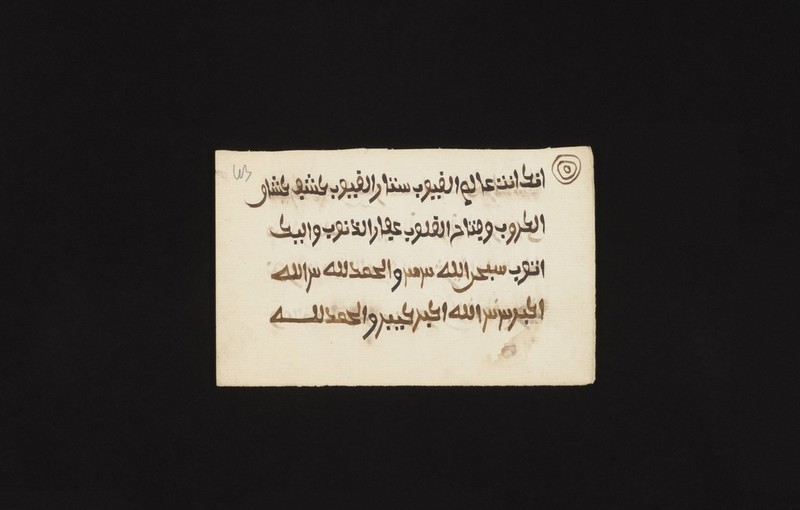 انك انت عالم الغيوب ستار العيوب كشف كشاف
الكروب ومفتاح القلوب غفار الذنوب واليك
اتوب سبحن الله والحمد لله الله
اكبر الله اكبر كبير والحمد لله